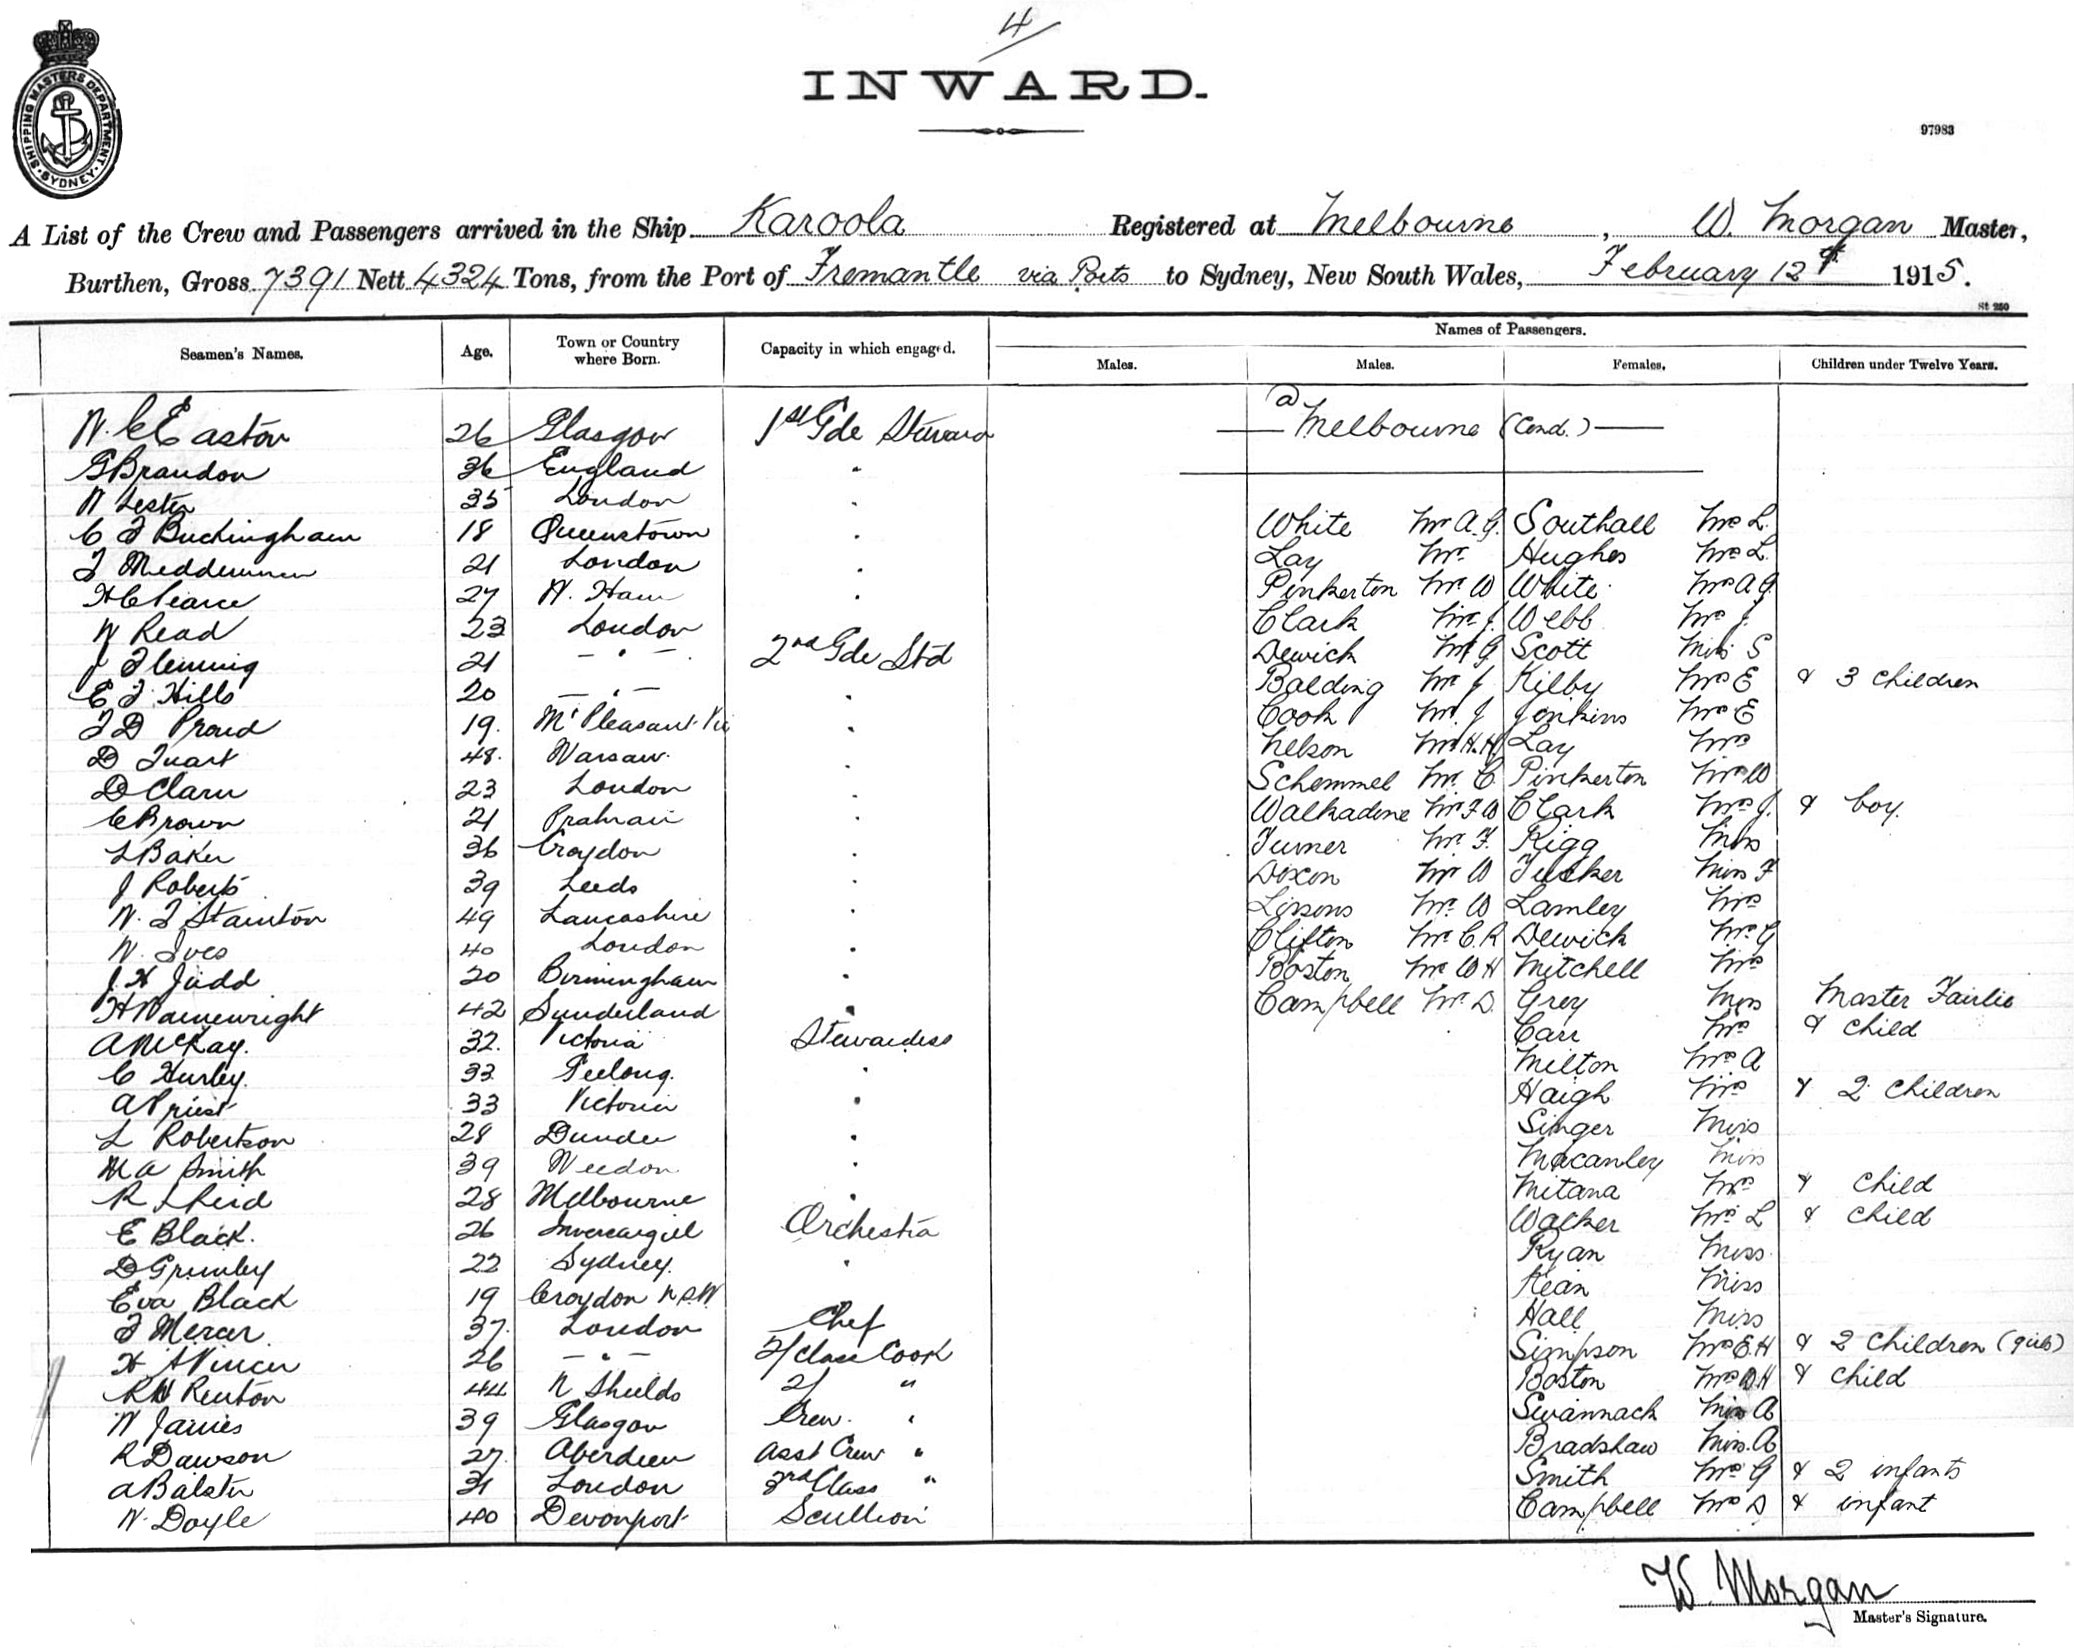 4
INWARD.
SHIPPING MASTERS DEPARTMENT
SYDNEY
97983
A List of the Crew and Passengers arrived in the Ship Karoola Registered at Melbourne, W. Morgan Master,
Burthen, Gross 7391 Nett 4324 Tons, from the Port of Fremantle via Ports to Sydney, New South Wales, February 12th 1915.
St 250
Names of Passengers.
Seamen's Names. Age. Town or Country where Born. Capacity in which engaged. Males. Males. Females. Children under Twelve Years.
W. C Easton 26 Glasgow 1st Gde Steward @ Melbourne (Cond.)
G Brandon 36 England "
W Lester 35 London "
C F Buckingham 18 Queenstown " White Mr A. G. Southall Mrs L.
21 London " Lay Mr. Hughes Mrs L.
H C Pearce 27 W. Ham " Pinkerton Mr. W White Mrs A G.
W Read 23 London Clark Mr. J. Webb Mrs J.
J Fleming 21 — " — 2nd Gde Std Dewick Mr G Scott Miss S
E F Hills 20 — " — " Balding Mr J Kilby Mrs E & 3 children
F D Proud 19. Mt Pleasant Vic " Cook Mr. J Jenkins Mrs E
D Tuart 48. Warsaw. " Nelson Mr H. H. Lay Mrs
D Clam 23 London " Schemmel Mr. C Pinkerton Mrs W
C Brown 21 Prahran " Walkadene Mr F W Clark Mrs J. & boy.
L Baker 36 Croydon " Turner Mr. F. Rigg Miss
J Roberts 39 Leeds " Dixon Mr W Tucker Miss F
W. F Stainton 49 Lancashire " Lissons Mr. W Lamley Mrs
W. Ives 40 London " Clifton Mr C. R Dewick Mrs G
J. H Judd 20 Birmingham " Boston Mr W H Mitchell Mrs
H Wainewright 42 Sunderland " Campbell Mr. D. Grey Miss Master Fairlie
A McKay. 32. Victoria Stewardess Carr Mrs & child
C Hurley. 33 Geelong. " Milton Mrs A
A Priest 33 Victoria " Haigh Mrs & 2 children
L Robertson 28 Dundee " Singer Miss
M A Smith 39 Weedon " Macanley Miss
R Reid 28 Melbourne " Mitana Mrs & child
E Black. 26 Invercargill Orchestra Walker Mrs L & child
D Grumley 22 Sydney. " Ryan Miss
Eva Black 19 Croydon N.S.W. Kean Miss
F Mercer. 37. London Chef Hall Miss
H A Vincer 26 — " — 2/Class Cook Simpson Mrs E. H & 2 children (girls)
R H Renton 44 N Shields 2/ " Boston Mrs W H & child
W James 39 Glasgow Crew. " Swannack Miss A
R Dawson 27. Aberdeen Asst Crew " Bradshaw Miss. A
A Balster 31 London 3rd Class " Smith Mrs G & 2 infants
W. Doyle 40 Devonport Scullion Campbell Mrs D & infant
W. Morgan
Master's Signature.